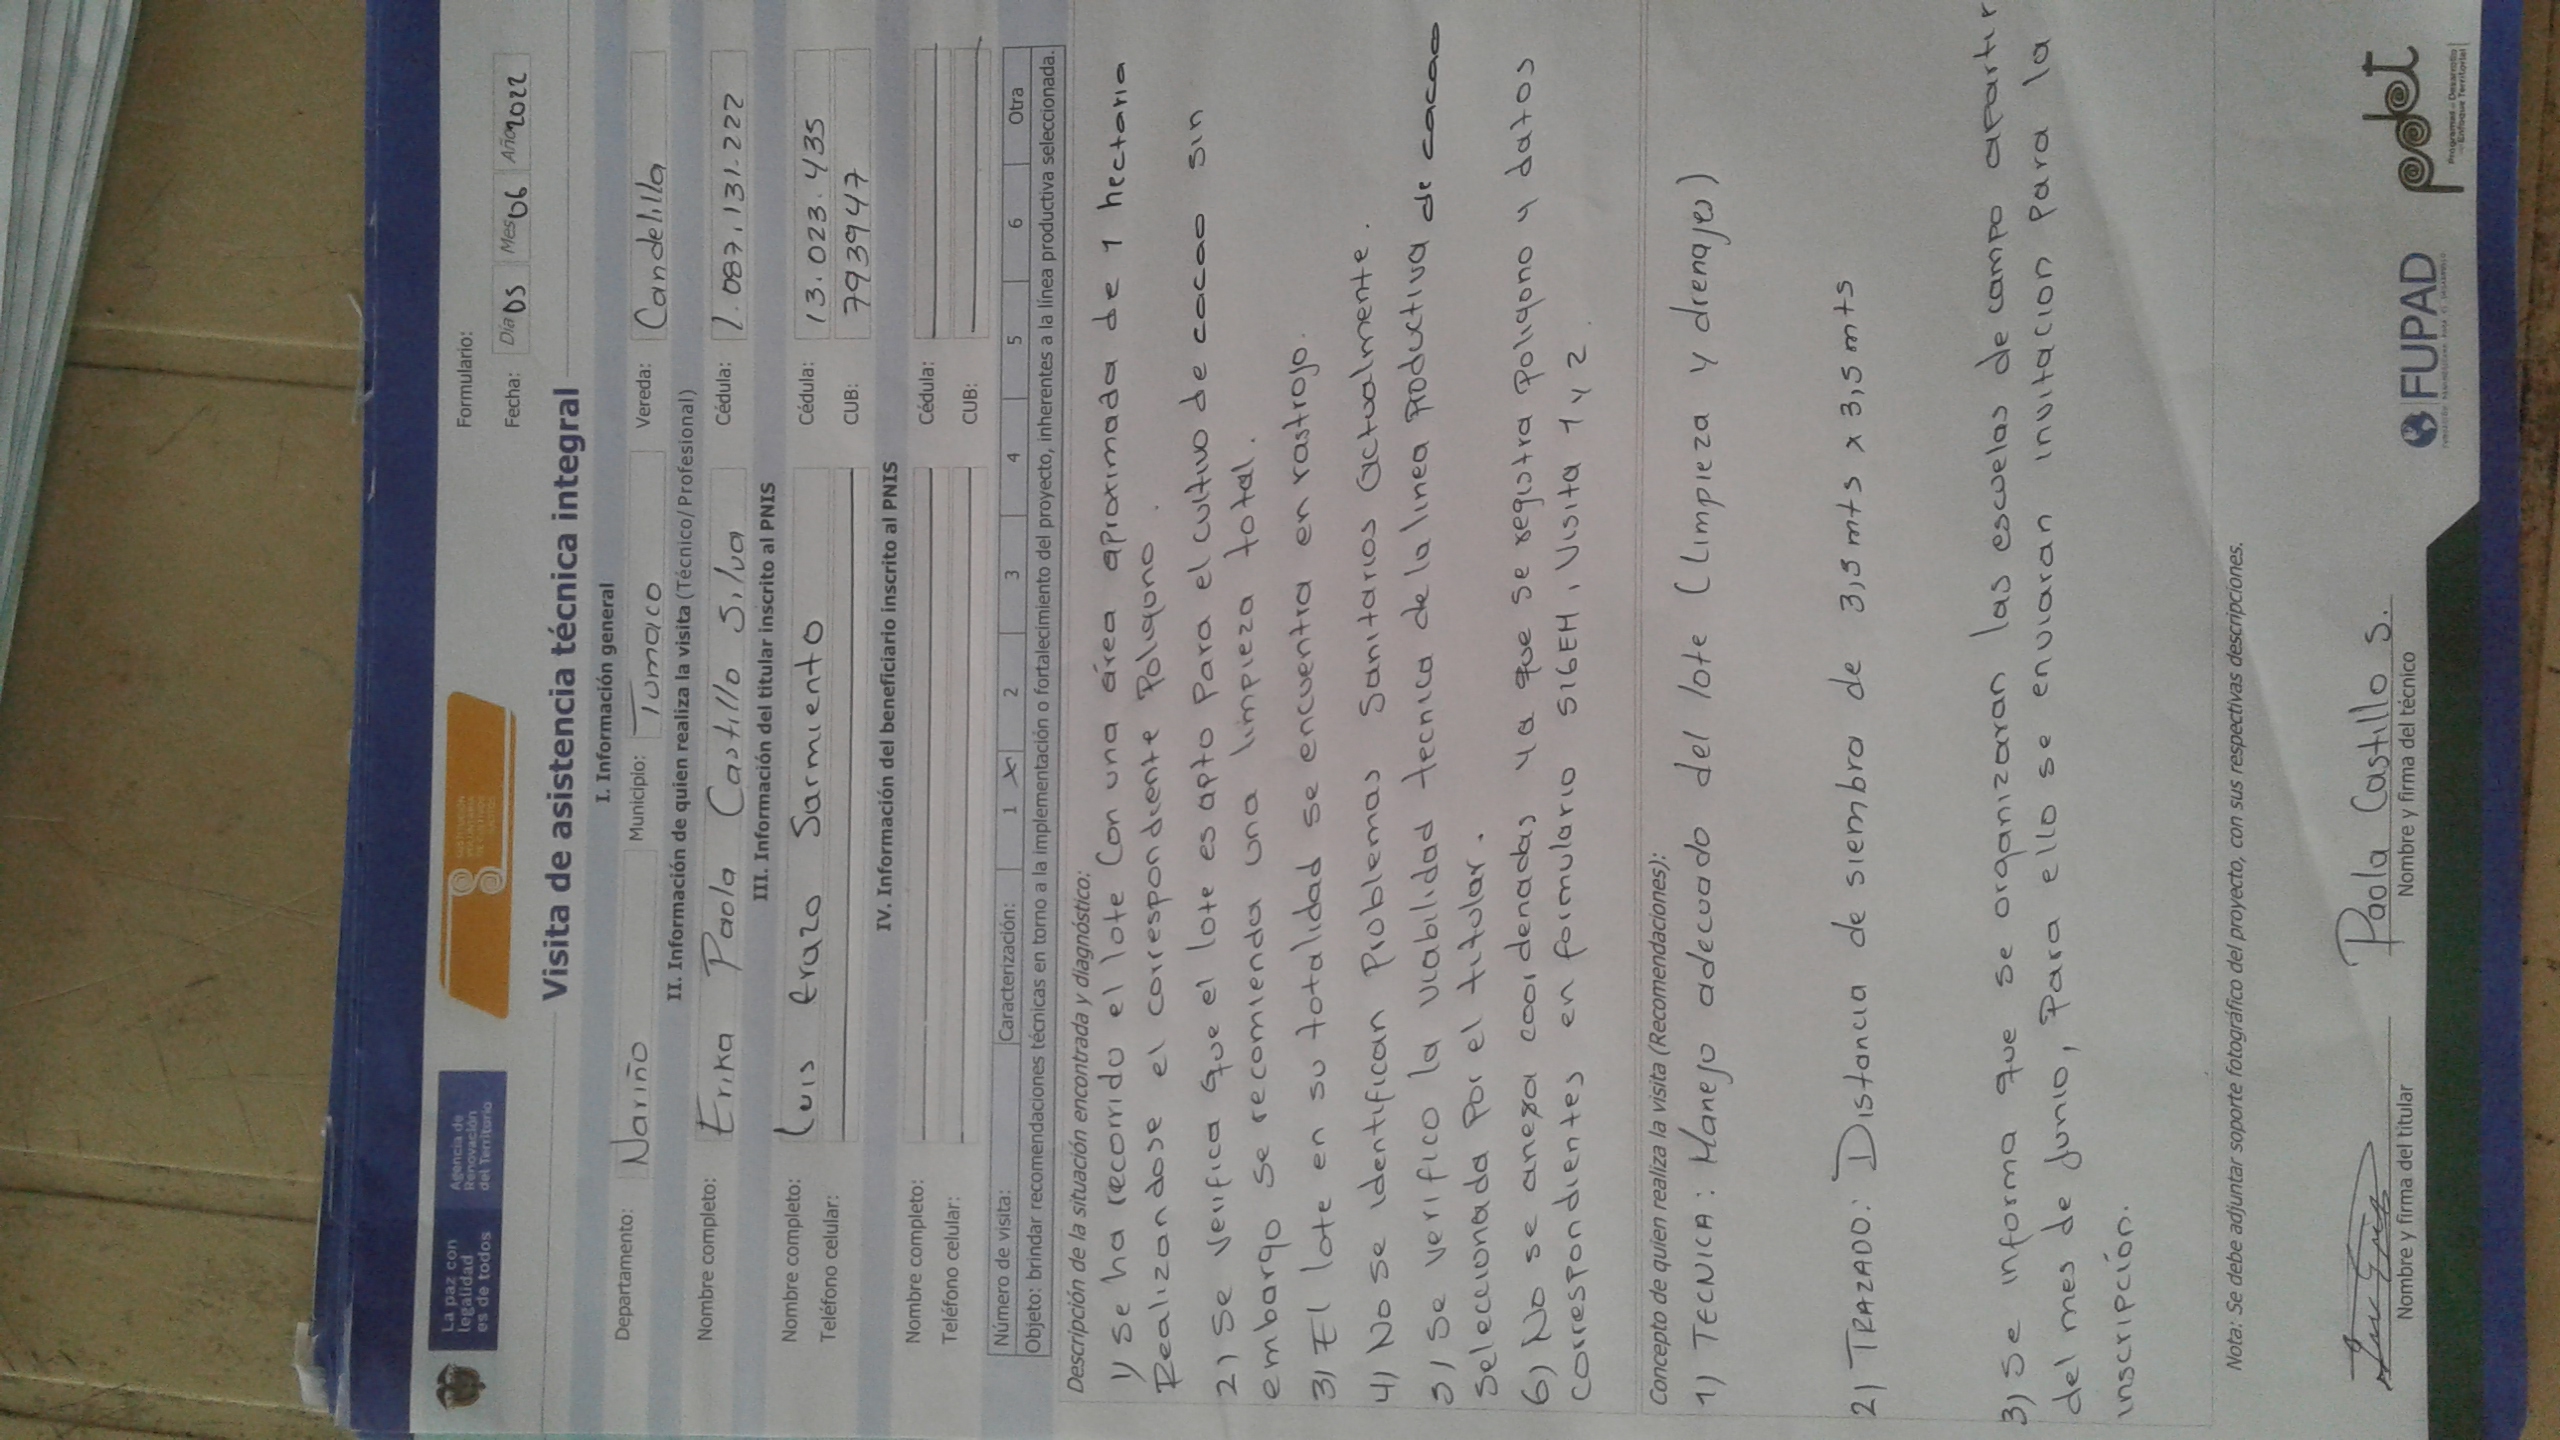 La paz con
legalidad
es de todos
Agencia de
Renovación
del Territorio
Formulario:
Fecha: Día 05 Mes 06 Año 2022
Visita de asistencia técnica integral
I. Información general
Departamento: Nariño Municipio: Tumaco Vereda: Candelilla
II. Información de quien realiza la visita (Técnico/ Profesional)
Nombre completo: Erika Paola Castillo Silva Cédula: 1.087.131.222
III. Información del titular inscrito al PNIS
Nombre completo: Luis Erazo Sarmiento Cédula: 13.023.435
Teléfono celular: CUB: 7939947
IV. Información del beneficiario inscrito al PNIS
Nombre completo: Cédula:
Teléfono celular: CUB:
Número de visita: Caracterización: 1 X 2 3 4 5 6 Otra
Objeto: brindar recomendaciones técnicas en torno a la implementación o fortalecimiento del proyecto, inherentes a la línea productiva seleccionada.
Descripción de la situación encontrada y diagnóstico:
1) Se ha recorrido el lote Con una área aproximada de 1 hectaria
Realizandose el correspondiente Poliguno.
2) Se verifica que el lote es apto Para el cultivo de cacao sin
embargo se recomienda una limpieza total.
3) El lote en su totalidad se encuentra en rastrojo.
4) No se identifican Problemas Sanitarios actualmente.
5) Se verifico la viabilidad tecnica de la linea Productiva de cacao
Seleccionada Por el titular.
6) No se anexa coordenadas ya que se registra Poligono y datos
Correspondientes en formulario SIGEM, Visita 1 y 2.
Concepto de quien realiza la visita (Recomendaciones):
1) TECNICA: Manejo adecuado del lote (Limpieza y drenajes)
2) TRAZADO: Distancia de siembra de 3,5 mts x 3,5 mts
3) Se informa que se organizaran las escuelas de campo apartir
del mes de Junio, Para ello se enviaran invitacion Para la
inscripción.
Nota: Se debe adjuntar soporte fotográfico del proyecto, con sus respectivas descripciones.
Paola Castillo S.
Nombre y firma del titular Nombre y firma del técnico
FUPAD
pdet
Programas de Desarrollo
con Enfoque Territorial